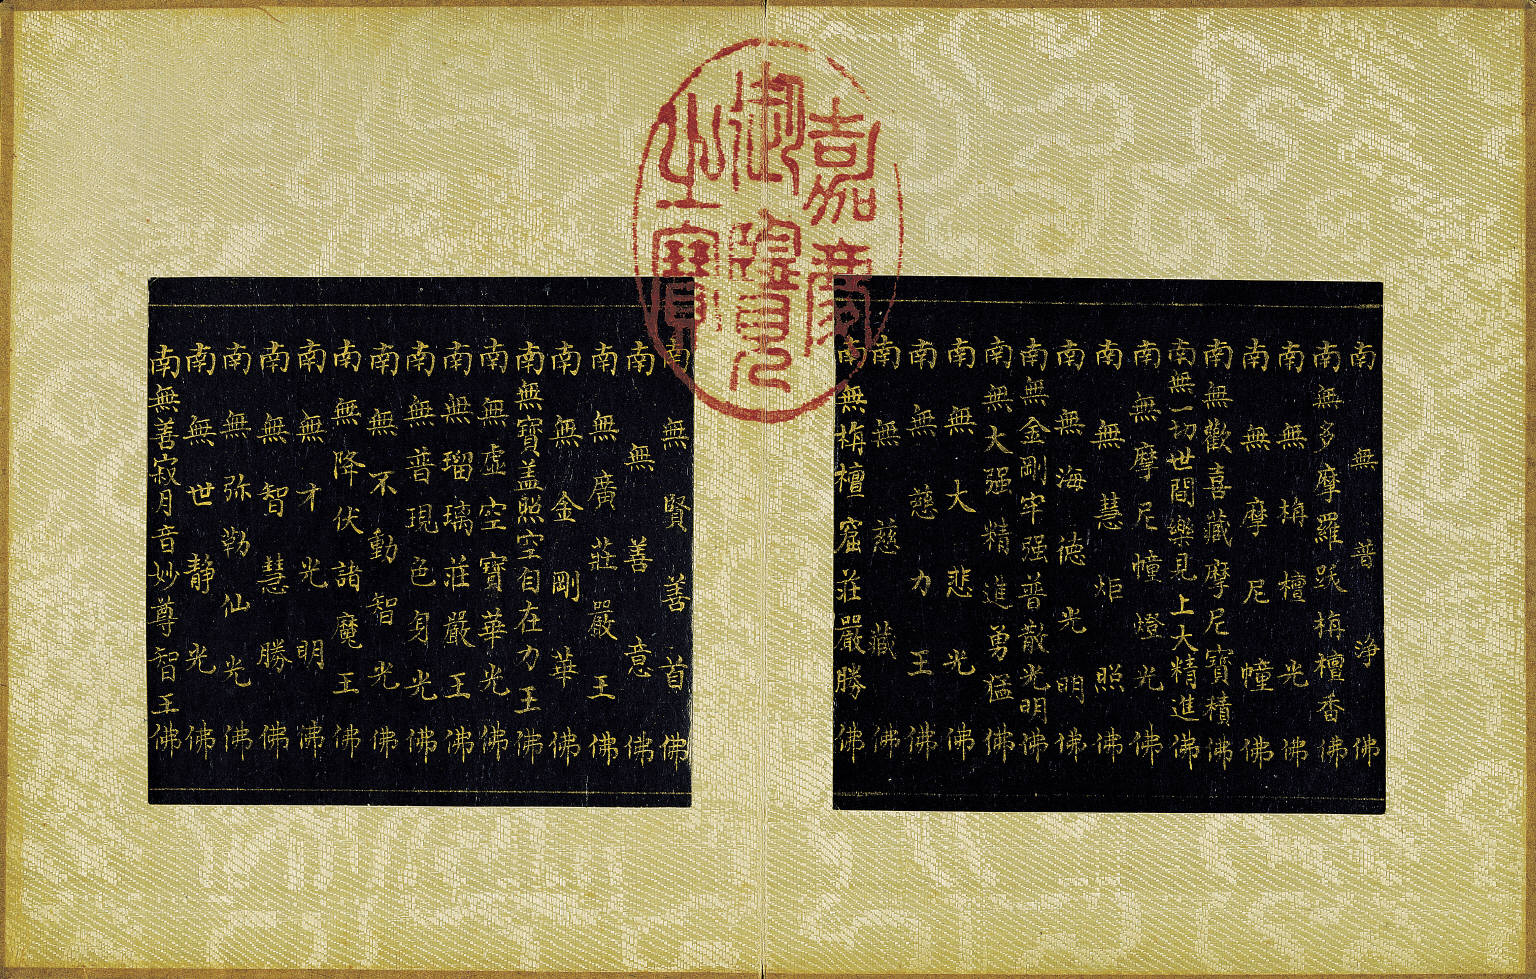 嘉慶
御覽
之寶
南無普淨佛
南無多摩羅跋栴檀香佛
南無栴檀光佛
南無摩尼幢佛
南無歡喜藏摩尼寶積佛
南無一切世間樂見上大精進佛
南無摩尼幢燈光佛
南無慧炬照佛
南無海德光明佛
南無金剛牢强普散光明佛
南無大强精進勇猛佛
南無大悲光佛
南無慈力王佛
南無慈藏佛
南無栴檀窟莊嚴勝佛
南無賢善首佛
南無善意佛
南無廣莊嚴王佛
南無金剛華佛
南無寶盖照空自在力王佛
南無虛空寶華光佛
南無瑠璃莊嚴王佛
南無普現色身光佛
南無不動智光佛
南無降伏諸魔王佛
南無才光明佛
南無智慧勝佛
南無弥勒仙光佛
南無世静光佛
南無善寂月音妙尊智王佛